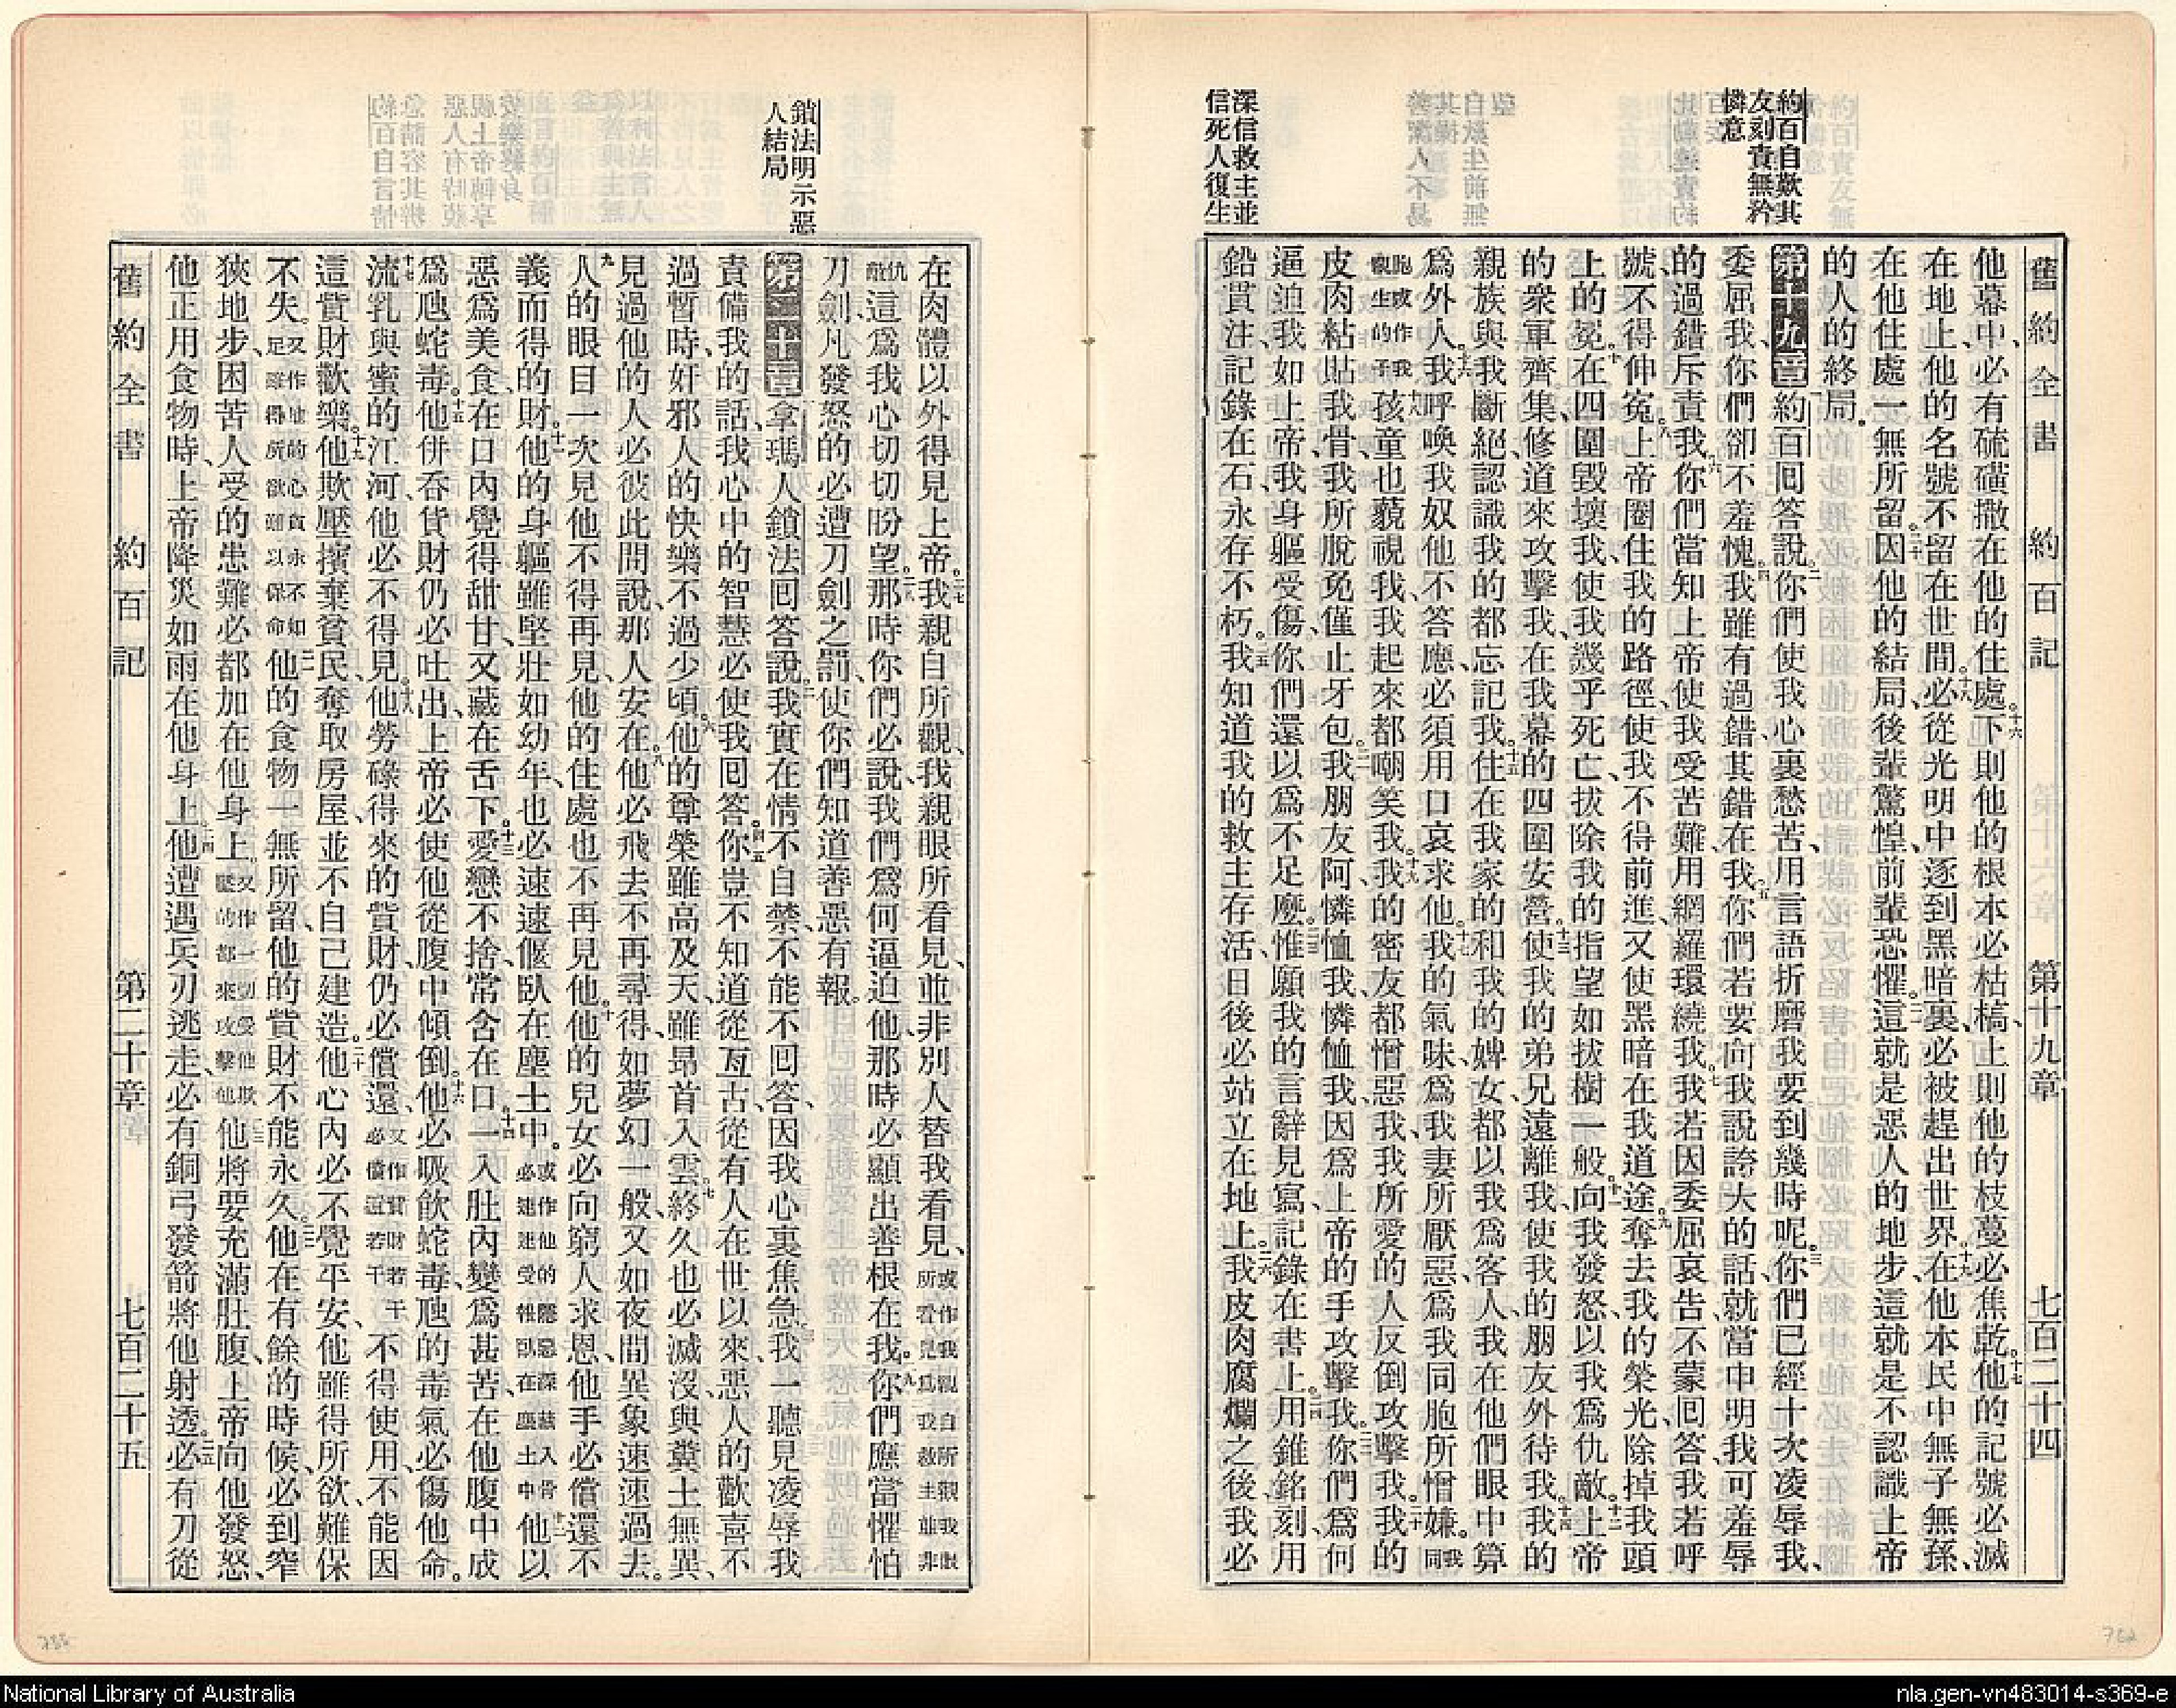 舊約全書 約百記 第十九章 七百二十四
約百自歎其
友刻責無矜
憐意
深信救主並
信死人復生
他幕中、必有硫磺撒在他的住處。十六下則他的根本必枯槁、上則他的枝蔓必焦乾。十七他的記號必滅
在地上、他的名號不留在世間。十八必從光明中逐到黑暗裏、必被趕出世界。十九在他本民中無子無孫、
在他住處一無所留。二十因他的結局、後輩驚惶、前輩恐懼。二一這就是惡人的地步、這就是不認識上帝
的人的終局。
第十九章 約百回答說、二你們使我心裏愁苦、用言語折磨我、要到幾時呢。三你們已經十次凌辱我、
委屈我、你們卻不羞愧。四我雖有過錯、其錯在我。五你們若要向我說誇大的話、就當申明我可羞辱
的過錯、斥責我。六你們當知上帝使我受苦難、用網羅環繞我。七我若因委屈哀告、不蒙回答、我若呼
號、不得伸冤。八上帝圈住我的路徑、使我不得前進、又使黑暗在我道途。九奪去我的榮光、除掉我頭
上的冕。十在四圍毀壞我、使我幾乎死亡、拔除我的指望如拔樹一般。十一向我發怒、以我爲仇敵。十二上帝
的衆軍齊集、修道來攻擊我、在我幕的四圍安營。十三使我的弟兄遠離我、使我的朋友外待我。十四我的
親族與我斷絕、認識我的都忘記我。十五住在我家的和我的婢女、都以我爲客人、我在他們眼中算
爲外人。十六我呼喚我奴、他不答應、必須用口哀求他。十七我的氣味、爲我妻所厭惡、爲我同胞所憎嫌。我同
胞或作我懷生的子十八孩童也藐視我、我起來都嘲笑我。十九我的密友都憎惡我、我所愛的人反倒攻擊我。二十我的
皮肉粘貼我骨、我所脫免僅止牙包。二一我朋友阿、憐恤我、憐恤我、因爲上帝的手攻擊我。二二你們爲何
逼迫我如上帝、我身軀受傷、你們還以爲不足麼。二三惟願我的言辭見寫、記錄在書上。二四用錐銘刻、用
鉛貫注、記錄在石、永存不朽。二五我知道我的救主存活、日後必站立在地上。二六我皮肉腐爛之後、我必
鎖法明示惡
人結局
在肉體以外得見上帝。二七我親自所觀、我親眼所看見、並非別人替我看見、或作我親自所觀我眼所看見爲我救主並非
仇敵這爲我心切切盼望。二八那時你們必說、我們爲何逼迫他、那時必顯出善根在我。二九你們應當懼怕
刀劍、凡發怒的必遭刀劍之罰、使你們知道善惡有報。
第二十章 拿瑪人鎖法回答說、二我實在情不自禁、不能不回答、因我心裏焦急。三我一聽見凌辱我
責備我的話、我心中的智慧必使我回答。四五你豈不知道從亙古、從有人在世以來、惡人的歡喜不
過暫時、奸邪人的快樂不過少頃。六他的尊榮雖高及天、雖昂首入雲、七終久也必滅沒、與糞土無異、
見過他的人必彼此問說、那人安在。八他必飛去不再尋得、如夢幻一般、又如夜間異象速速過去。
九人的眼目一次見他、不得再見、他的住處也不再見他。十他的兒女必向窮人求恩、他手必償還不
義而得的財。十一他的身軀雖堅壯如幼年、也必速速偃臥在塵土中。或作他的隱惡深藏入骨必速速受報臥在塵土中十二他以
惡爲美食、在口內覺得甜甘、又藏在舌下。十三愛戀不捨、常含在口。十四一入肚內變爲甚苦、在他腹中成
爲虺蛇毒。十五他併吞貨財仍必吐出、上帝必使他從腹中傾倒。十六他必吸飲蛇毒、虺的毒氣必傷他命。
十七流乳與蜜的江河、他必不得見。十八他勞碌得來的貲財、仍必償還、又作貲財若干必償還若干不得使用、不能因
這貲財歡樂。十九他欺壓擯棄貧民、奪取房屋、並不自己建造。二十他心內必不覺平安、他雖得所欲、難保
不失。又作他的心貪永不知足雖得所欲難以保命二一他的食物一無所留、他的貲財不能永久。二二他在有餘的時候、必到窄
狹地步、困苦人受的患難必都加在他身上。又作一切受他欺壓的都來攻擊他二三他將要充滿肚腹、上帝向他發怒、
他正用食物時、上帝降災如雨在他身上。二四他遭遇兵刃逃走、必有銅弓發箭將他射透。二五必有刀從
舊約全書 約百記 第二十章 七百二十五
National Library of Australia
nla.gen-vn483014-s369-e